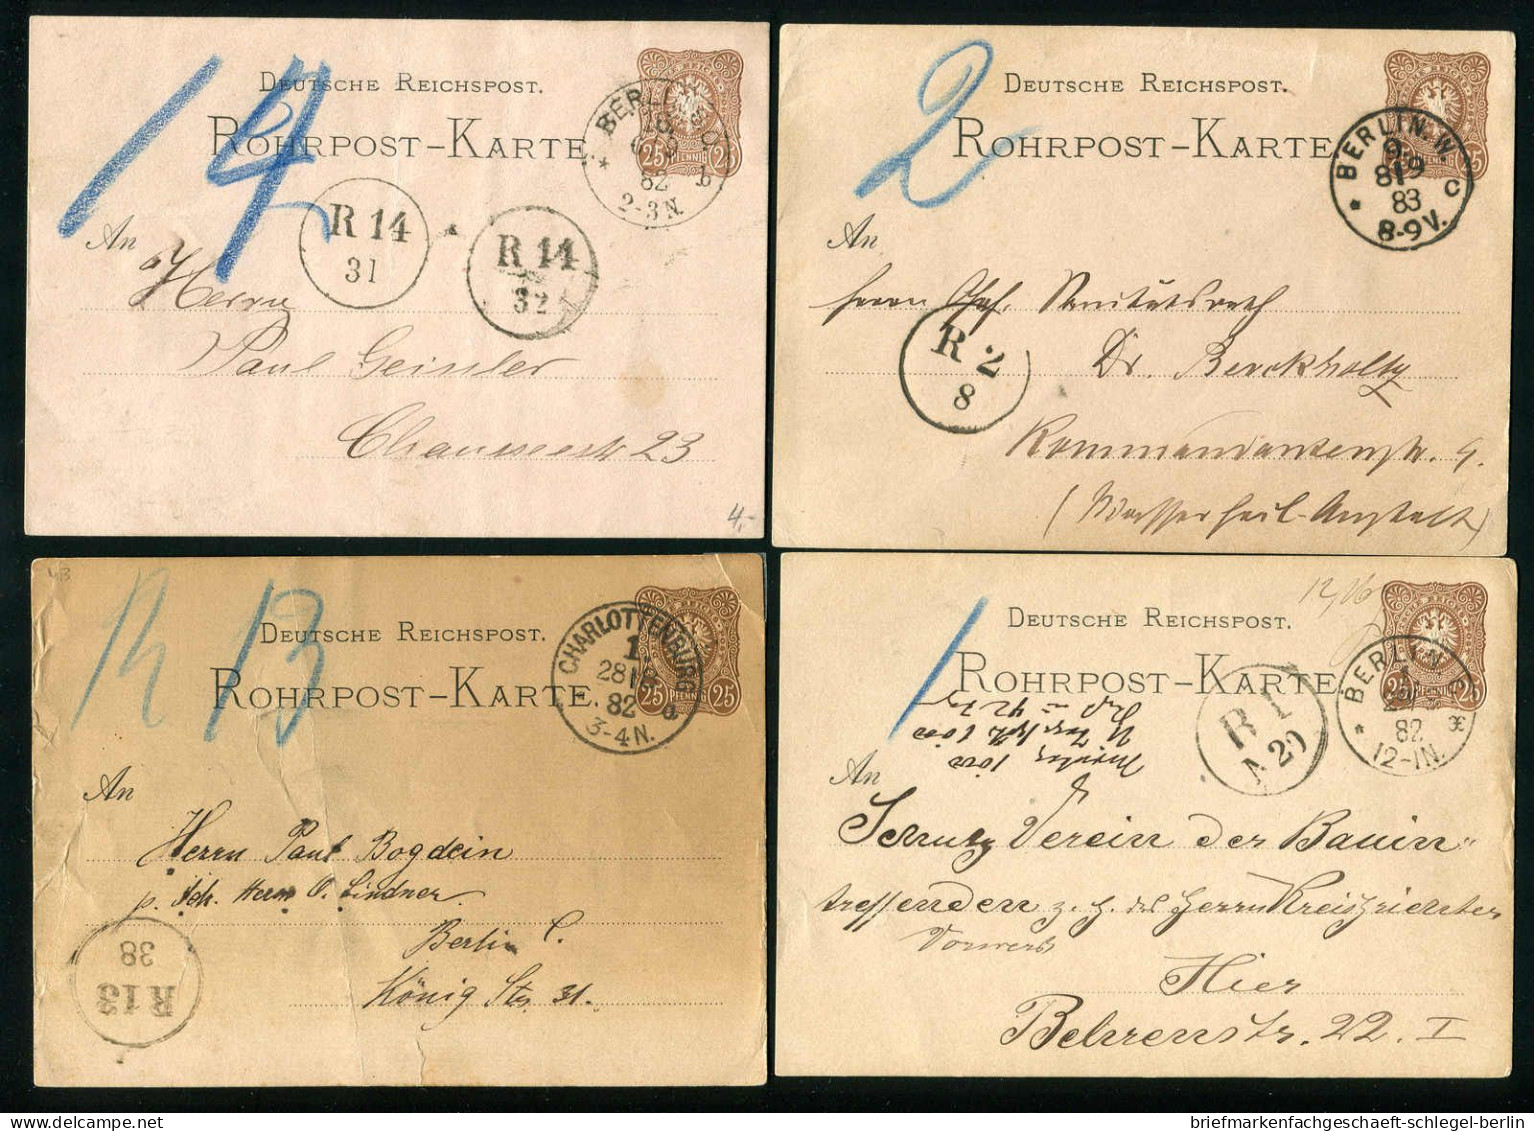 14
DEUTSCHE REICHSPOST.
ROHRPOST-KARTE.
25 PFENNIG 25
BERLIN
82
2-3 N.
b
R 14
31
R 14
32
An
Herrn
Paul Geissler
Chausseestr 23
4,-
2
DEUTSCHE REICHSPOST.
ROHRPOST-KARTE.
BERLIN. W.
9
8 9
83
8-9 V.
c
An
Herrn Geh. Sanitätsrath
R 2
8
Dr. Berckholtz
Kommandantenstr. 9.
(Wasserheil-Anstalt)
R 13
DEUTSCHE REICHSPOST.
ROHRPOST-KARTE.
25 PFENNIG 25
CHARLOTTENBURG
1
28
82
a
3-4 N.
An
Herrn Paul Bogdein
p. Adr. Herrn O. Lindner.
Berlin C.
König Str. 31.
R 13
38
1
12,06
DEUTSCHE REICHSPOST.
ROHRPOST-KARTE.
25 PFENNIG 25
BERLIN
82
12-1 N.
R 1
A 20
An
Schutz Verein der Bauin-
treffenden z. H. des Herrn Kreisrichter
Vorwerk
Hier
Behrenstr. 22. I
briefmarkenfachgeschaeft-schlegel-berlin